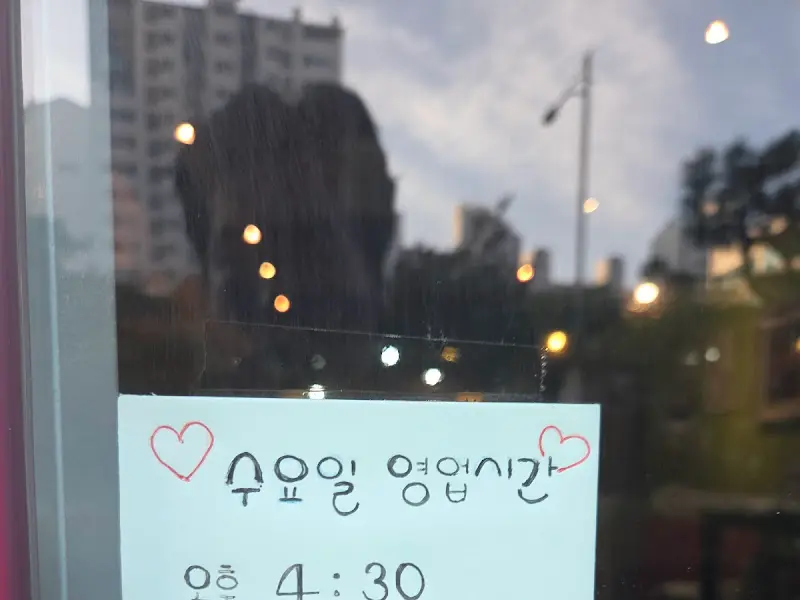 수요일 영업시간
오후 4:30